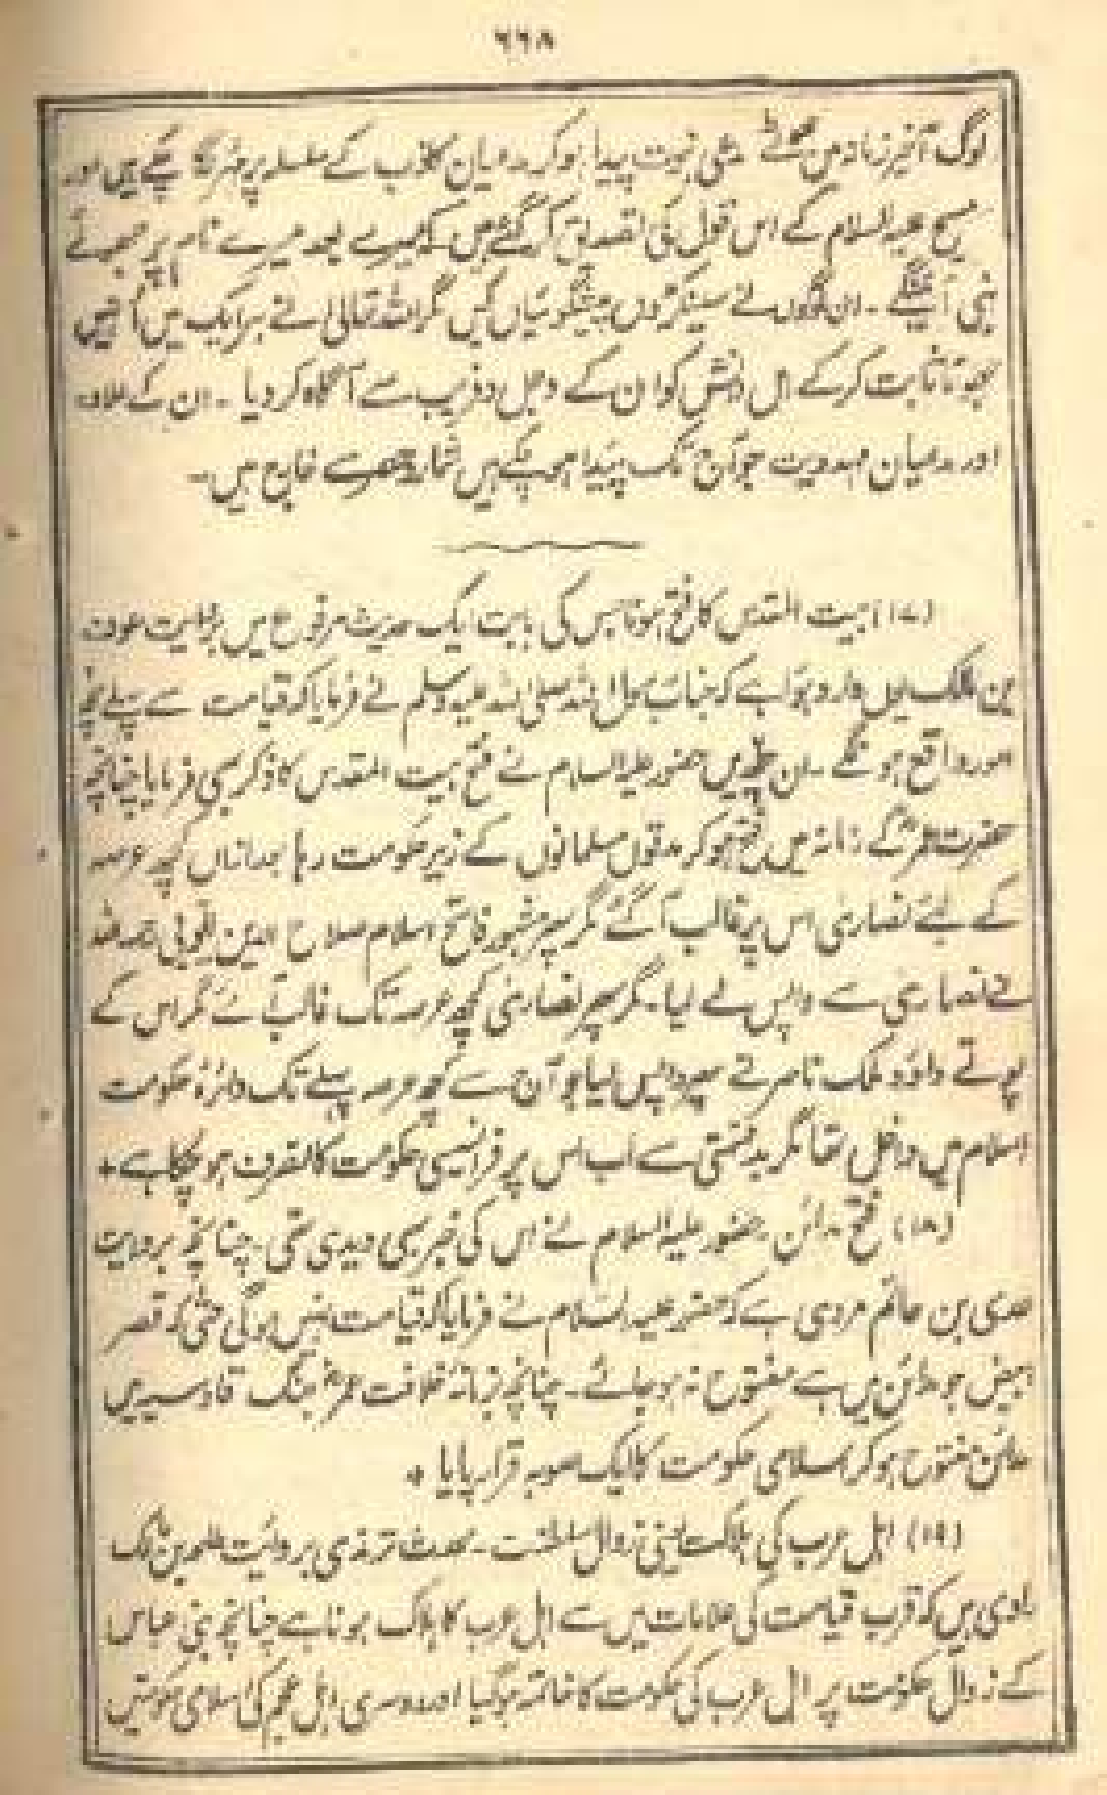 ۶۶۸
لوگ آخیر زمانہ میں جھوٹے مدعی نبوت پیدا ہوکر مدعیان کاذب کے سلسلہ پر مہر لگا چکے ہیں اور
مسیح علیہ السلام کے اس قول کی تصدیق کر گئے ہیں کہ میرے بعد میرے نام پر جھوٹے
نبی آئینگے ۔ ان لوگوں نے سینکڑوں پیشگوئیاں کیں مگر اللہ تعالیٰ نے ہر ایک میں انہیں
جھوٹا ثابت کرکے اہل دانش کو ان کے دجل و فریب سے آگاہ کر دیا ۔ ان کے علاوہ
اور مدعیان مہدویت جو آج تک پیدا ہو چکے ہیں شمار سے خارج ہیں۔
(۱۷) بیت المقدس کا فتح ہونا جس کی بابت ایک حدیث مرفوع میں بروایت عوف
بن مالک وارد ہوا ہے کہ جناب رسول اللہ صلی اللہ علیہ وسلم نے فرمایا کہ قیامت سے پہلے چھ
امور واقع ہونگے ۔ ان میں حضور علیہ السلام نے فتح بیت المقدس کا ذکر بھی فرمایا چنانچہ
حضرت عمرؓ کے زمانہ میں فتح ہوکر مدتوں مسلمانوں کے زیر حکومت رہا بعد ازاں کچھ عرصہ
کے لئے نصاریٰ اس پر غالب آگئے مگر پھر مشہور فاتح اسلام صلاح الدین ایوبی رحمہ اللہ
نے نصاریٰ سے واپس لے لیا ۔ مگر پھر نصاریٰ کچھ عرصہ تک غالب آئے مگر اس کے
پوتے داؤد ملک ناصر نے پھر واپس لیا جو آج سے کچھ عرصہ پہلے تک دائرۂ حکومت
اسلام میں داخل تھا مگر بدقسمتی سے اب اس پر فرانسیسی حکومت کا تصرف ہو چکا ہے ۔
(۱۸) فتح مدائن ۔ حضور علیہ السلام نے اس کی خبر بھی دیدی تھی ۔ چنانچہ بروایت
عدی بن حاتم مروی ہے کہ حضور علیہ السلام نے فرمایا کہ قیامت نہیں ہوگی حتیٰ کہ قصر
ابیض جو مدائن میں ہے مفتوح نہ ہو جائے ۔ چنانچہ زمانہ خلافت عمرؓ جنگ قادسیہ میں
مدائن مفتوح ہوکر اسلامی حکومت کا ایک صوبہ قرار پایا ۔
(۱۹) اہل عرب کی ہلاکت یعنی زوال سلطنت ۔ محدث ترمذی بروایت طلحہ بن مالک
راوی ہیں کہ قرب قیامت کی علامات میں سے اہل عرب کا ہلاک ہونا ہے چنانچہ بنی عباس
کے زوال حکومت پر اہل عرب کی حکومت کا خاتمہ ہوگیا اور دوسری اہل عجم کی اسلامی حکومتیں